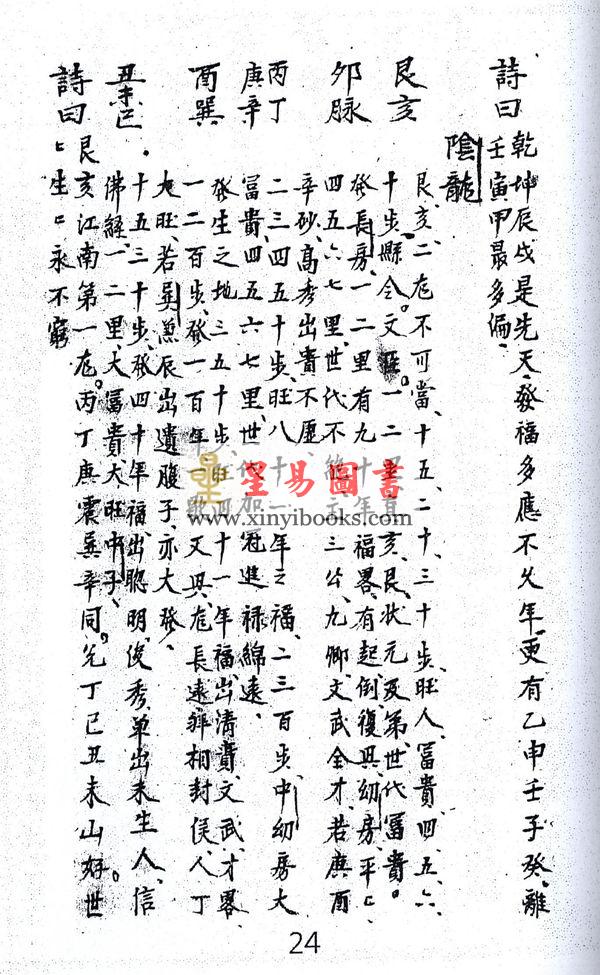 詩曰 乾坤辰戌是先天、發福多應不久年、更有乙申壬子癸、離
壬寅甲最多偏、
陰龍
艮亥 艮、亥、二龙不可當、十五、二十、三十步、旺人、冨貴四、五、六、
十步、縣令、文
亥、艮、狀元及第世代冨貴。
卯脉 發長房、一二里有九
福畧有起倒復興、幼房平亡
四五六七里、世代不
三公、九卿、文武全才若庚酉
辛砂、高秀出貴不
丙丁 二三四五十步、旺八
年之福、二三百步、中幼房大
庚辛 冨貴、四五六七里、世
冠進祿綿遠、
酉巽 發生之地、三五十步、旺
十一年、福、出清貴、文武、才畧
一二百步、發一百年
又興、龙長遠拜相封侯、人丁
大旺、若巽兼辰出遺腹子、亦大發、
丑未巳 十五三十步、發四十年福、出聰明、俊秀單出未生人、信
佛經、一二里、大冨貴、大旺中子、
詩曰 艮亥江南第一龙。丙丁庚震巽辛同。兌丁巳丑未山好。世
世生生永不窮
星易圖書
www.xinyibooks.com
24